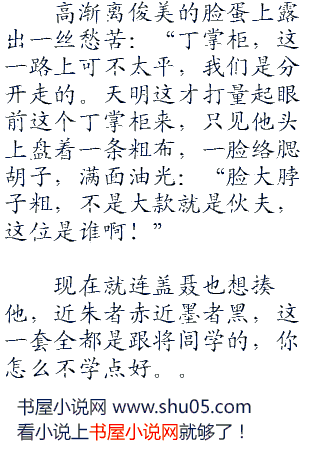 高渐离俊美的脸蛋上露
出一丝愁苦：“丁掌柜，这
一路上可不太平，我们是分
开走的。天明这才打量起眼
前这个丁掌柜来，只见他头
上盘着一条粗布，一脸络腮
胡子，满面油光：“脸大脖
子粗，不是大款就是伙夫，
这位是谁啊！”
现在就连盖聂也想揍
他，近朱者赤近墨者黑，这
一套全都是跟将闾学的，你
怎么不学点好。。
书屋小说网 www.shu05.com
看小说上书屋小说网就够了！